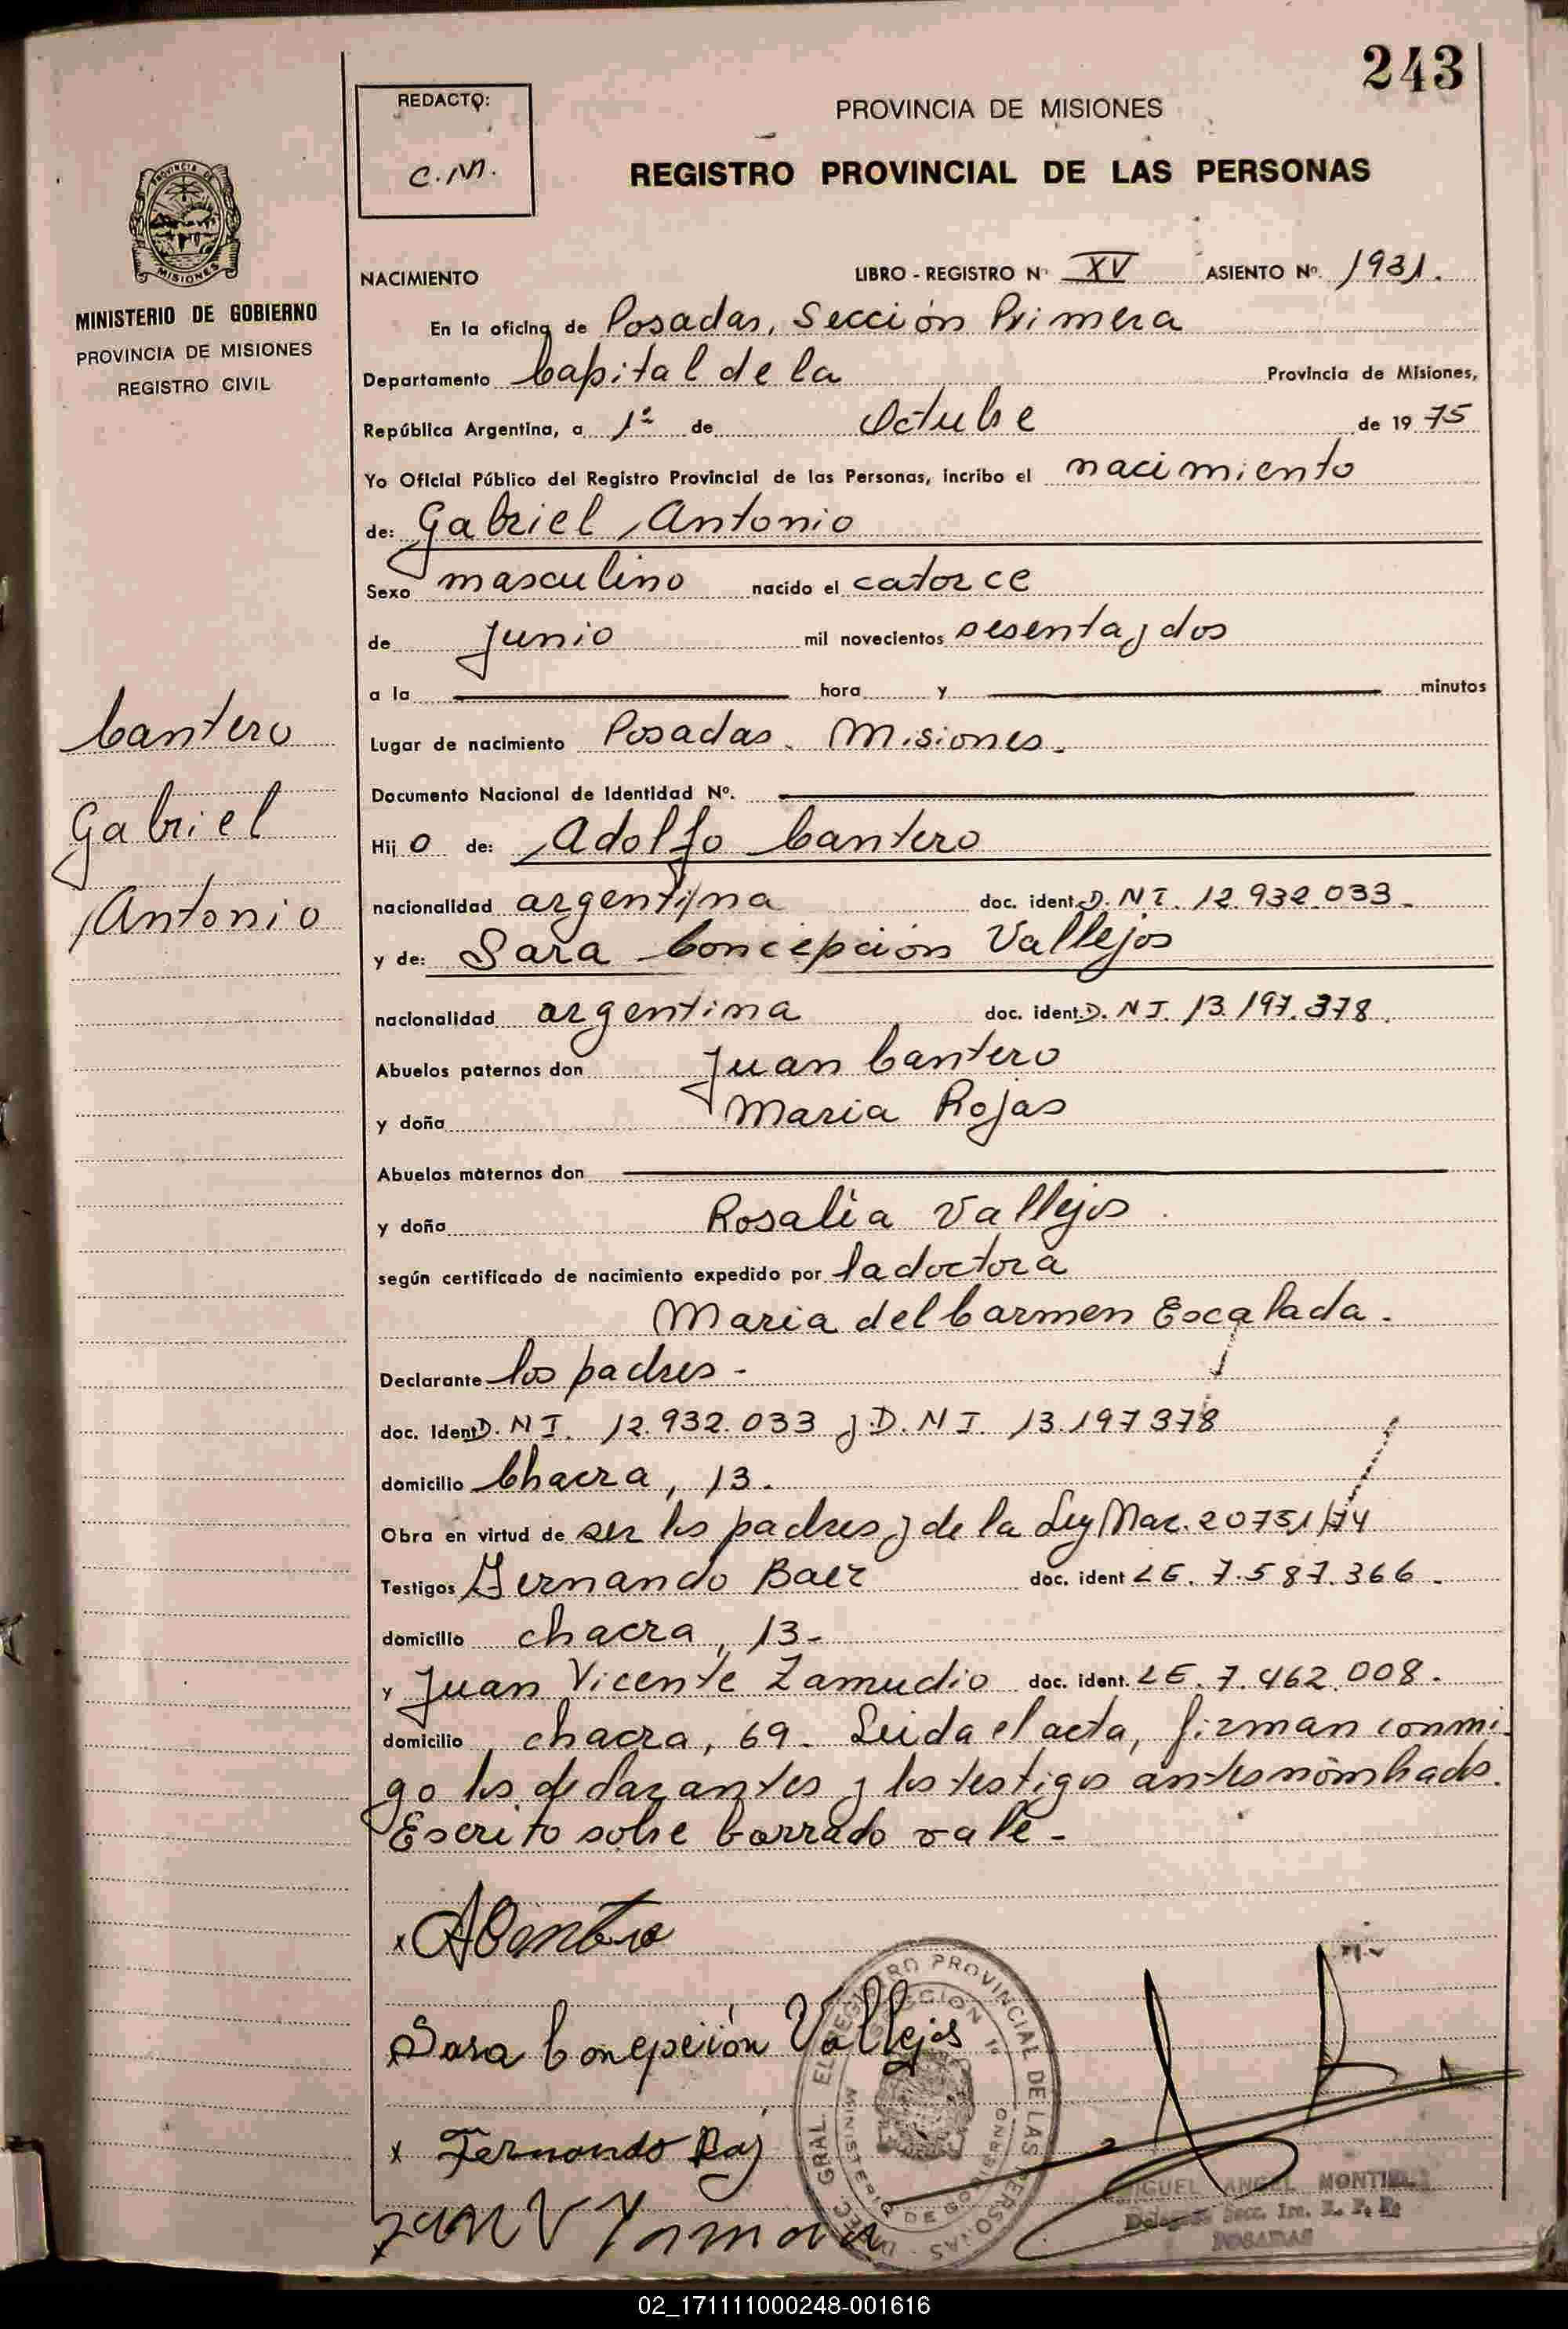 243
REDACTO:
C.M.
PROVINCIA DE MISIONES
REGISTRO PROVINCIAL DE LAS PERSONAS
PROVINCIA DE
MISIONES
MINISTERIO DE GOBIERNO
PROVINCIA DE MISIONES
REGISTRO CIVIL
NACIMIENTO LIBRO - REGISTRO Nº XV ASIENTO Nº. 1931.
En la oficina de Posadas, Sección Primera
Departamento Capital de la Provincia de Misiones,
República Argentina, a 1º de Octubre de 19 75
Yo Oficial Público del Registro Provincial de las Personas, incribo el nacimiento
de: Gabriel Antonio
Sexo masculino nacido el catorce
de Junio mil novecientos sesenta y dos
a la hora y minutos
Cantero
Gabriel
Antonio
Lugar de nacimiento Posadas. Misiones.
Documento Nacional de Identidad Nº.
Hij o de: Adolfo Cantero
nacionalidad argentina doc. ident. D.N.I. 12.932.033.
y de: Sara Concepción Vallejos
nacionalidad argentina doc. ident. D.N.I. 13.197.378.
Abuelos paternos don Juan Cantero
y doña Maria Rojas
Abuelos maternos don
y doña Rosalia Vallejos.
según certificado de nacimiento expedido por la doctora
Maria del Carmen Escalada.
Declarante los padres -
doc. Ident D.N.I. 12.932.033 y D.N.I. 13.197378
domicilio Chacra, 13.
Obra en virtud de ser los padres y de la Ley Nac. 20751/74
Testigos Fernando Baez doc. ident L.E. 7.587.366.
domicilio chacra, 13-
y Juan Vicente Zamudio doc. ident. L.E. 7.462.008.
domicilio chacra, 69. Leida el acta, firman conmi-
go los declarantes y los testigos antes nombrados.
Escrito sobre borrado vale -
x ACantero
Sara Concepción Vallejos
x Fernando Baz
JUAN V
REGISTRO PROVINCIAL DE LAS PERSONAS
SECCION 1ª
MINISTERIO DE GOBIERNO
MIGUEL ANGEL MONTIEL
Delegado Secc. 1ra. R. P. P.
POSADAS
02_171111000248-001616